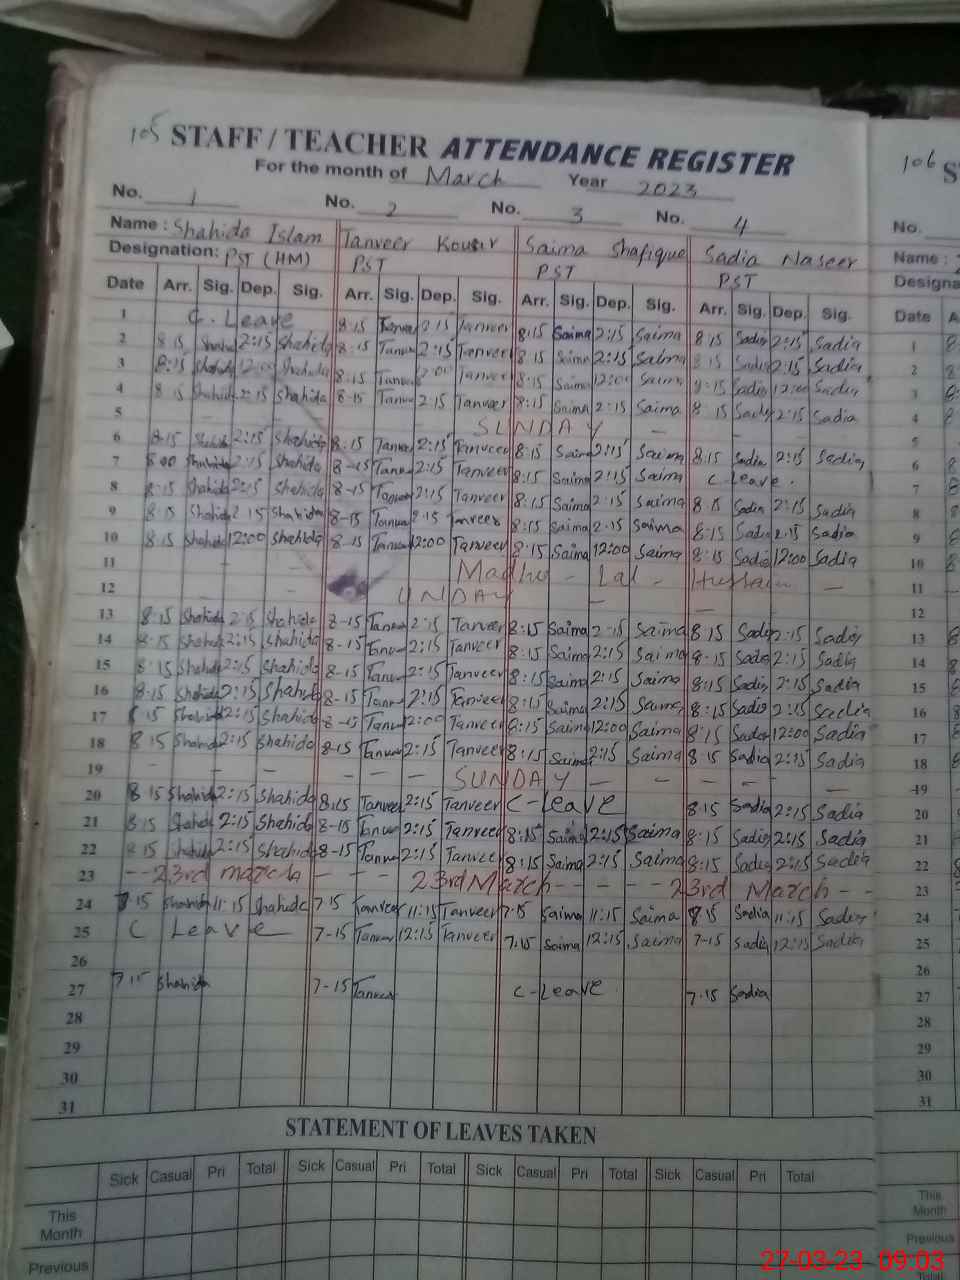 105 STAFF / TEACHER ATTENDANCE REGISTER 106
For the month of March Year 2023
No. 1 No. 2 No. 3 No. 4 No.
Name : Shahida Islam Tanveer Kousir Saima Shafique Sadia Naseer Name :
Designation: PST (HM) PST PST PST
Date Arr. Sig. Dep. Sig. Arr. Sig. Dep. Sig. Arr. Sig. Dep. Sig. Arr. Sig. Dep. Sig. Date
1 C. Leave 8:15 Tanveer 2:15 Tanveer 8:15 Saima 2:15 Saima 8:15 Sadia 2:15 Sadia 1
2 8:15 Shahida 2:15 Shahida 8-15 Tanveer 2:15 Tanveer 8:15 Saima 2:15 Saima 8:15 Sadia 2:15 Sadia 2
3 8:15 Shahida 12:00 Shahida 8:15 Tanveer Tanveer 8:15 Saima 12:00 Saima 8:15 Sadia 12:00 Sadia 3
4 8:15 Shahida 2:15 Shahida 8-15 Tanveer 2:15 Tanveer 8:15 Saima 2:15 Saima 8:15 Sadia 2:15 Sadia 4
5 SUNDAY 5
6 8:15 Shahida 2:15 Shahida 8:15 Tanveer 2:15 Tanveer 8:15 Saima 2:15 Saima 8:15 Sadia 2:15 Sadia 6
7 8:00 Shahida 2:15 Shahida 8-15 Tanveer 2:15 Tanveer 8:15 Saima 2:15 Saima C Leave. 7
8 8:15 Shahida 2:15 Shahida 8-15 Tanveer 2:15 Tanveer 8:15 Saima 2:15 Saima 8:15 Sadia 2:15 Sadia 8
9 8:15 Shahida 2:15 Shahida 8-15 Tanveer 2:15 Tanveer 8:15 Saima 2:15 Saima 8:15 Sadia 2:15 Sadia 9
10 8:15 Shahida 12:00 Shahida 8-15 Tanveer 12:00 Tanveer 8:15 Saima 12:00 Saima 8:15 Sadia 12:00 Sadia 10
11 Madhu - Lal - Hussain 11
12 UNDAY 12
13 8:15 Shahida 2:15 Shahida 8-15 Tanveer 2:15 Tanveer 8:15 Saima 2-15 Saima 8:15 Sadia 2:15 Sadia 13
14 8:15 Shahida 2:15 Shahida 8-15 Tanveer 2:15 Tanveer 8:15 Saima 2:15 Saima 8-15 Sadia 2:15 Sadia 14
15 8:15 Shahida 2:15 Shahida 8-15 Tanveer 2:15 Tanveer 8:15 Saima 2:15 Saima 8:15 Sadia 2:15 Sadia 15
16 8-15 Shahida 2:15 Shahida 8-15 Tanveer 2:15 Tanveer 8:15 Saima 2:15 Saima 8:15 Sadia 2:15 Sadia 16
17 8:15 Shahida 2:15 Shahida 8-15 Tanveer 2:00 Tanveer 8:15 Saima 12:00 Saima 8:15 Sadia 12:00 Sadia 17
18 8:15 Shahida 2:15 Shahida 8-15 Tanveer 2:15 Tanveer 8:15 Saima 2:15 Saima 8:15 Sadia 2:15 Sadia 18
19 SUNDAY 19
20 8:15 Shahida 2:15 Shahida 8:15 Tanveer 2:15 Tanveer C-Leave 8:15 Sadia 2:15 Sadia 20
21 8:15 Shahida 2:15 Shahida 8-15 Tanveer 2:15 Tanveer 8:15 Saima 2:15 Saima 8:15 Sadia 2:15 Sadia 21
22 8:15 Shahida 2:15 Shahida 8-15 Tanveer 2:15 Tanveer 8:15 Saima 2:15 Saima 8:15 Sadia 2:15 Sadia 22
23 -- 23rd march - - - 23rd March - - - - 23rd March - - 23
24 7:15 Shahida 11:15 Shahida 7:15 Tanveer 11:15 Tanveer 7:15 Saima 11:15 Saima 8:15 Sadia 11:15 Sadia 24
25 C Leave 7-15 Tanveer 12:15 Tanveer 7:15 Saima 12:15 Saima 7-15 Sadia 12:15 Sadia 25
26 26
27 7:15 Shahida 7-15 Tanveer C-Leave 7:15 Sadia 27
28 28
29 29
30 30
31 31
STATEMENT OF LEAVES TAKEN
Sick Casual Pri Total Sick Casual Pri Total Sick Casual Pri Total Sick Casual Pri Total
This Month This Month
Previous Previous
Total
27-03-23 09:03